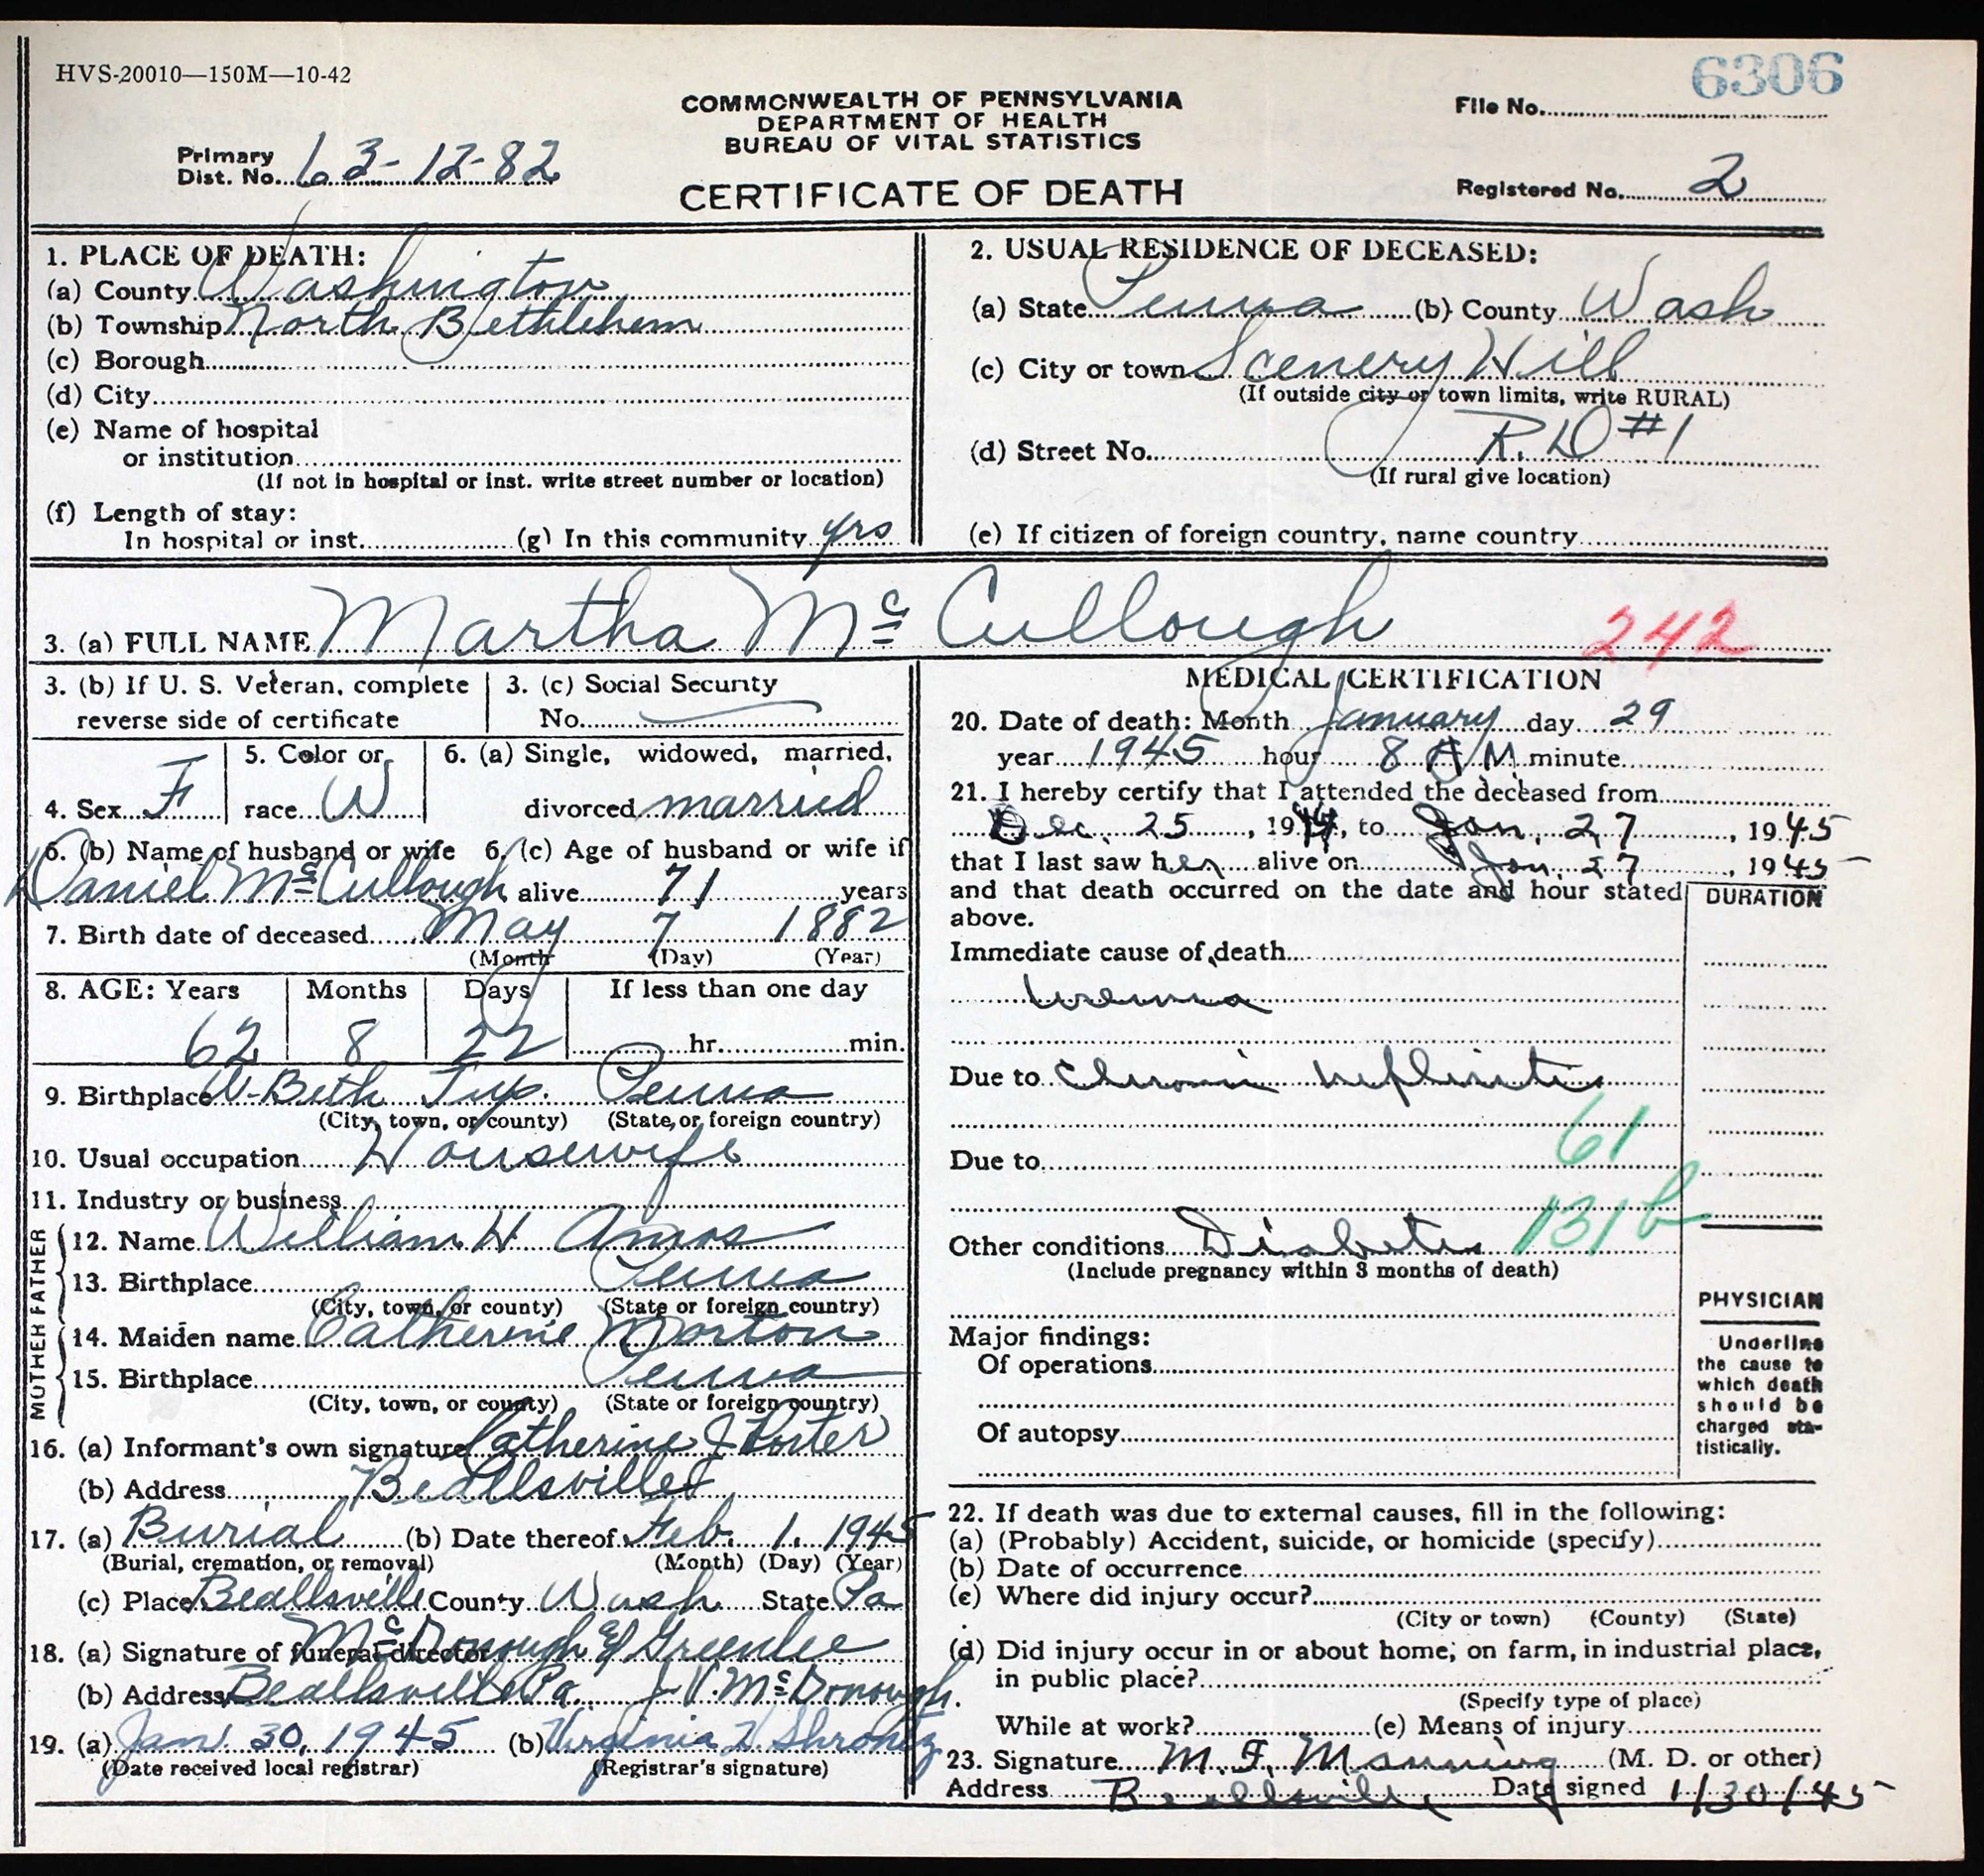 HVS-20010—150M—10-42
6306
COMMONWEALTH OF PENNSYLVANIA
DEPARTMENT OF HEALTH
BUREAU OF VITAL STATISTICS
File No.
Primary
Dist. No. 63-12-82
CERTIFICATE OF DEATH
Registered No. 2
1. PLACE OF DEATH:
(a) County Washington
(b) Township North Bethlehem
(c) Borough
(d) City
(e) Name of hospital
or institution
(If not in hospital or inst. write street number or location)
(f) Length of stay:
In hospital or inst. (g) In this community yrs
2. USUAL RESIDENCE OF DECEASED:
(a) State Penna (b) County Wash
(c) City or town Scenery Hill
(If outside city or town limits, write RURAL)
(d) Street No. R.D #1
(If rural give location)
(e) If citizen of foreign country, name country
3. (a) FULL NAME Martha Mc Cullough 242
3. (b) If U. S. Veteran, complete
reverse side of certificate
3. (c) Social Security
No.
4. Sex F
5. Color or
race W
6. (a) Single, widowed, married,
divorced married
6. (b) Name of husband or wife
Daniel McCullough
6. (c) Age of husband or wife if
alive 71 years
7. Birth date of deceased May 7 1882
(Month) (Day) (Year)
8. AGE: Years Months Days If less than one day
62 8 22 hr. min.
9. Birthplace W-Beth Twp. Penna
(City, town, or county) (State or foreign country)
10. Usual occupation Housewife
11. Industry or business
FATHER
12. Name William H Amos
13. Birthplace Penna
(City, town, or county) (State or foreign country)
MOTHER
14. Maiden name Catherine Morton
15. Birthplace Penna
(City, town, or county) (State or foreign country)
16. (a) Informant's own signature Catherine J Porter
(b) Address Beallsville
17. (a) Burial (b) Date thereof Feb. 1, 1945
(Burial, cremation, or removal) (Month) (Day) (Year)
(c) Place Beallsville County Wash State Pa
18. (a) Signature of funeral director McDonough & Greenlee
(b) Address Beallsville Pa. J V. McDonough.
19. (a) Jan. 30, 1945 (b) Virginia H. Shrontz
(Date received local registrar) (Registrar's signature)
MEDICAL CERTIFICATION
20. Date of death: Month January day 29
year 1945 hour 8 A M. minute
21. I hereby certify that I attended the deceased from
Dec. 25, 1944, to Jan. 27, 1945
that I last saw her alive on Jan. 27, 1945
and that death occurred on the date and hour stated
above.
DURATION
Immediate cause of death
Uremia
Due to Chronic nephritis
61
Due to
131b
Other conditions Diabetes
(Include pregnancy within 3 months of death)
Major findings:
Of operations
Of autopsy
PHYSICIAN
Underline
the cause to
which death
should be
charged sta-
tistically.
22. If death was due to external causes, fill in the following:
(a) (Probably) Accident, suicide, or homicide (specify)
(b) Date of occurrence
(c) Where did injury occur?
(City or town) (County) (State)
(d) Did injury occur in or about home, on farm, in industrial place,
in public place?
(Specify type of place)
While at work? (e) Means of injury
23. Signature M. F. Manning (M. D. or other)
Address Beallsville Date signed 1/30/45